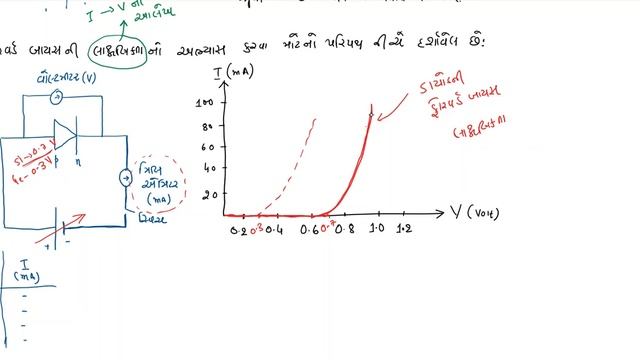 I → V નો
આલેખ
ર્વર્ડ બાયસની લાક્ષણિકતાનો અભ્યાસ કરવા માટેનો પરિપથ નીચે દર્શાવેલ છે:
વોલ્ટમીટર (V)
Si→0.7 V
Ge-0.3V
p n
મિલિ
એમીટર
(mA)
+ -
I
(mA)
I (mA)
100
80
60
40
20
0.2 0.3 0.4 0.6 0.7 0.8 1.0 1.2
V (Volt)
ડાયોડની
ફોરવર્ડ બાયસ
લાક્ષણિકતા